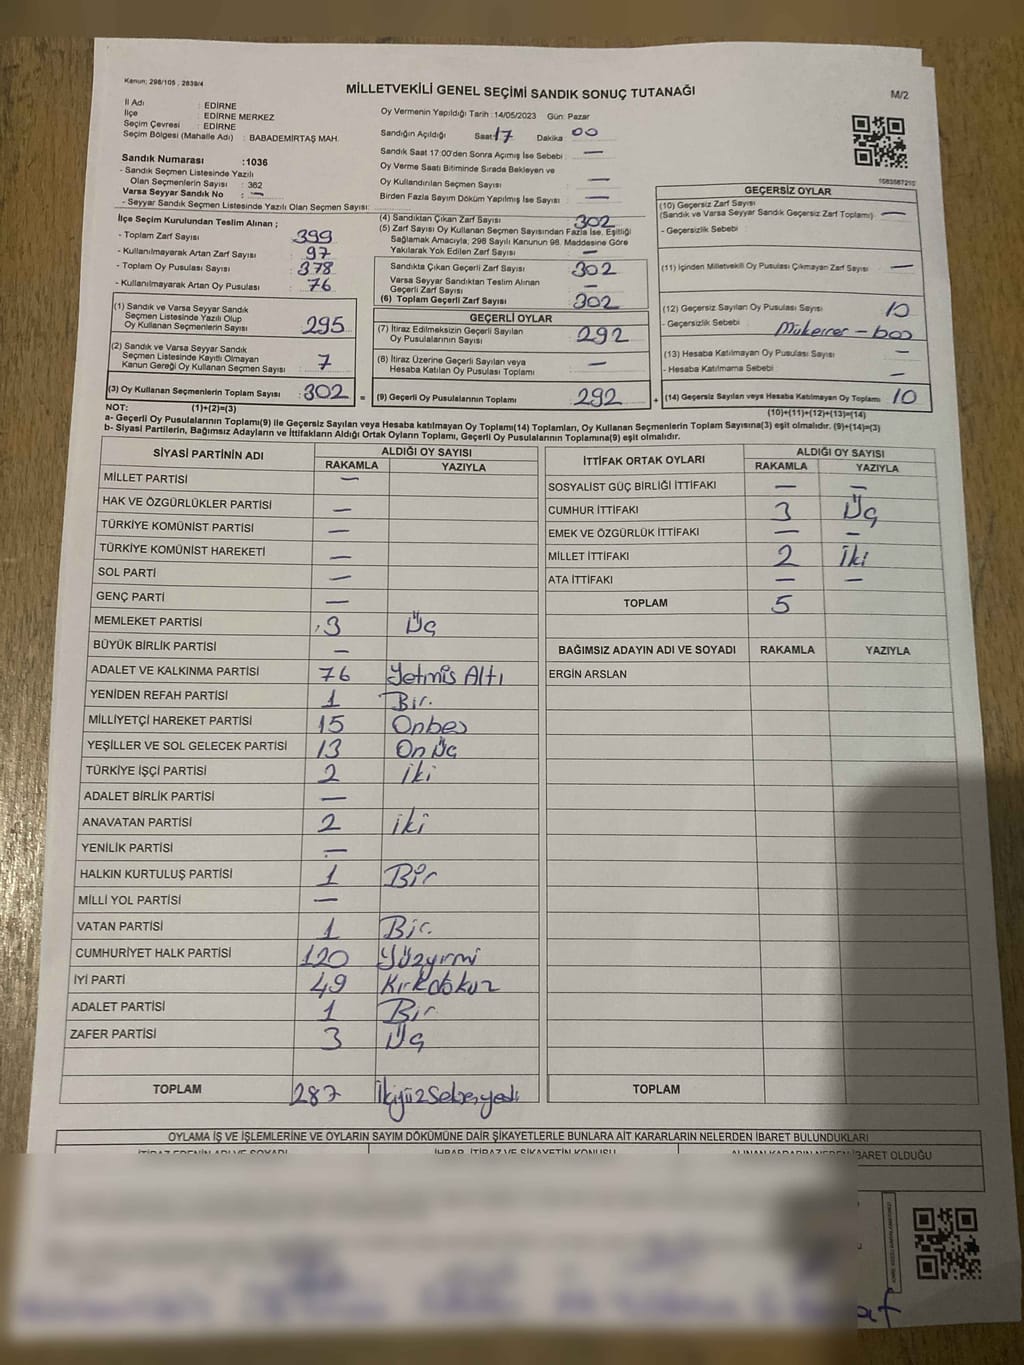 Kanun; 298/105 , 2839/4
MİLLETVEKİLİ GENEL SEÇİMİ SANDIK SONUÇ TUTANAĞI
M/2
İl Adı : EDİRNE
İlçe : EDİRNE MERKEZ
Seçim Çevresi : EDİRNE
Seçim Bölgesi (Mahalle Adı) : BABADEMİRTAŞ MAH.
Oy Vermenin Yapıldığı Tarih :14/05/2023 Gün: Pazar
Sandığın Açıldığı Saat 17 Dakika 00
Sandık Saat 17:00'den Sonra Açımış İse Sebebi : —
Oy Verme Saati Bitiminde Sırada Bekleyen ve
Oy Kullandırılan Seçmen Sayısı : —
Birden Fazla Sayım Döküm Yapılmış İse Sayısı : —
Sandık Numarası :1036
- Sandık Seçmen Listesinde Yazılı
Olan Seçmenlerin Sayısı : 362
Varsa Seyyar Sandık No : —
- Seyyar Sandık Seçmen Listesinde Yazılı Olan Seçmen Sayısı:
İlçe Seçim Kurulundan Teslim Alınan ;
- Toplam Zarf Sayısı : 399
- Kullanılmayarak Artan Zarf Sayısı : 97
- Toplam Oy Pusulası Sayısı : 378
- Kullanılmayarak Artan Oy Pusulası : 76
(1) Sandık ve Varsa Seyyar Sandık
Seçmen Listesinde Yazılı Olup
Oy Kullanan Seçmenlerin Sayısı : 295
(2) Sandık ve Varsa Seyyar Sandık
Seçmen Listesinde Kayıtlı Olmayan
Kanun Gereği Oy Kullanan Seçmen Sayısı : 7
(3) Oy Kullanan Seçmenlerin Toplam Sayısı : 302
(4) Sandıktan Çıkan Zarf Sayısı : 302
(5) Zarf Sayısı Oy Kullanan Seçmen Sayısından Fazla İse, Eşitliği
Sağlamak Amacıyla; 298 Sayılı Kanunun 98. Maddesine Göre
Yakılarak Yok Edilen Zarf Sayısı : —
Sandıkta Çıkan Geçerli Zarf Sayısı : 302
Varsa Seyyar Sandıktan Teslim Alınan
Geçerli Zarf Sayısı : —
(6) Toplam Geçerli Zarf Sayısı : 302
GEÇERLİ OYLAR
(7) İtiraz Edilmeksizin Geçerli Sayılan
Oy Pusulalarının Sayısı : 292
(8) İtiraz Üzerine Geçerli Sayılan veya
Hesaba Katılan Oy Pusulası Toplamı : —
= (9) Geçerli Oy Pusulalarının Toplamı : 292
1683587210
GEÇERSİZ OYLAR
(10) Geçersiz Zarf Sayısı
(Sandık ve Varsa Seyyar Sandık Geçersiz Zarf Toplamı) : —
- Geçersizlik Sebebi :
(11) İçinden Milletvekili Oy Pusulası Çıkmayan Zarf Sayısı : —
(12) Geçersiz Sayılan Oy Pusulası Sayısı : 10
- Geçersizlik Sebebi : Mükerrer - boş
(13) Hesaba Katılmayan Oy Pusulası Sayısı : —
- Hesaba Katılmama Sebebi : —
+ (14) Geçersiz Sayılan veya Hesaba Katılmayan Oy Toplamı : 10
NOT: (1)+(2)=(3)
(10)+(11)+(12)+(13)=(14)
a- Geçerli Oy Pusulalarının Toplamı(9) ile Geçersiz Sayılan veya Hesaba katılmayan Oy Toplamı(14) Toplamları, Oy Kullanan Seçmenlerin Toplam Sayısına(3) eşit olmalıdır. (9)+(14)=(3)
b- Siyasi Partilerin, Bağımsız Adayların ve İttifakların Aldığı Ortak Oyların Toplamı, Geçerli Oy Pusulalarının Toplamına(9) eşit olmalıdır.
SİYASİ PARTİNİN ADI ALDIĞI OY SAYISI
RAKAMLA YAZIYLA
MİLLET PARTİSİ —
HAK VE ÖZGÜRLÜKLER PARTİSİ —
TÜRKİYE KOMÜNİST PARTİSİ —
TÜRKİYE KOMÜNİST HAREKETİ —
SOL PARTİ —
GENÇ PARTİ —
MEMLEKET PARTİSİ 3 Üç
BÜYÜK BİRLİK PARTİSİ —
ADALET VE KALKINMA PARTİSİ 76 Yetmiş Altı
YENİDEN REFAH PARTİSİ 1 Bir.
MİLLİYETÇİ HAREKET PARTİSİ 15 Onbeş
YEŞİLLER VE SOL GELECEK PARTİSİ 13 On Üç
TÜRKİYE İŞÇİ PARTİSİ 2 iki
ADALET BİRLİK PARTİSİ —
ANAVATAN PARTİSİ 2 iki
YENİLİK PARTİSİ —
HALKIN KURTULUŞ PARTİSİ 1 Bir
MİLLİ YOL PARTİSİ —
VATAN PARTİSİ 1 Bir.
CUMHURİYET HALK PARTİSİ 120 Yüzyirmi
İYİ PARTİ 49 Kırkdokuz
ADALET PARTİSİ 1 Bir
ZAFER PARTİSİ 3 Üç
TOPLAM 287 İkiyüzSeksenyedi
İTTİFAK ORTAK OYLARI ALDIĞI OY SAYISI
RAKAMLA YAZIYLA
SOSYALİST GÜÇ BİRLİĞİ İTTİFAKI — —
CUMHUR İTTİFAKI 3 Üç
EMEK VE ÖZGÜRLÜK İTTİFAKI — —
MİLLET İTTİFAKI 2 İki
ATA İTTİFAKI — —
TOPLAM 5
BAĞIMSIZ ADAYIN ADI VE SOYADI RAKAMLA YAZIYLA
ERGİN ARSLAN
TOPLAM
OYLAMA İŞ VE İŞLEMLERİNE VE OYLARIN SAYIM DÖKÜMÜNE DAİR ŞİKAYETLERLE BUNLARA AİT KARARLARIN NELERDEN İBARET BULUNDUKLARI
İTİRAZ EDENİN ADI VE SOYADI İHBAR, İTİRAZ VE ŞİKAYETİN KONUSU ALINAN KARARIN NEDEN İBARET OLDUĞU